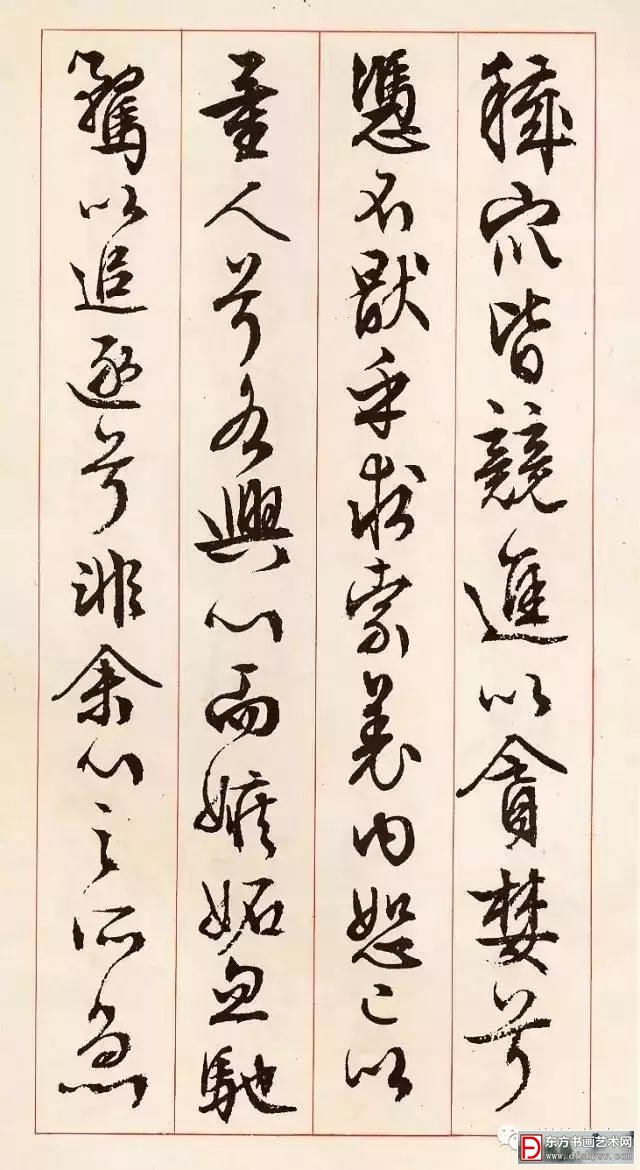 穢眾皆競進以貪婪兮
憑不猒乎求索羌內恕己以
量人兮各興心而嫉妬忽馳
騖以追逐兮非余心之所急
东方书画艺术网